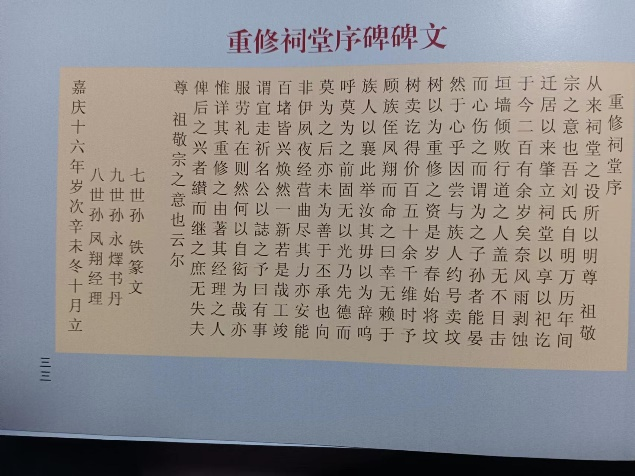 重修祠堂序碑碑文
重修祠堂序
从来祠堂之设所以明尊 祖敬
宗之意也吾刘氏自明万历年间
迁居以来肇立祠堂以享以祀讫
于今二百有余岁矣奈风雨剥蚀
垣墙倾败行道之人盖无不目击
而心伤之而谓为之子孙者能晏
然于心乎因尝与族人约号卖坟
树以为重修之资是岁春始将坟
树卖讫得价百五十余千维时予
顾族侄凤翔而命之曰幸无赖于
族人以襄此举汝其毋以为辞呜
呼莫为之前固无以光乃先德而
莫为之后亦未为善于丕承也向
非伊夙夜经营曲尽其力亦安能
百堵皆兴焕然一新若是哉工竣
谓宜走祈名公以誌之予曰有事
服劳礼在则然何以自衒为哉亦
惟详其重修之由著其经理之人
俾后之兴者缵而继之庶无失夫
尊 祖敬宗之意也云尔
七世孙 铁篆文
九世孙 永燡书丹
八世孙 凤翔经理
嘉庆十六年岁次辛未冬十月立
三三